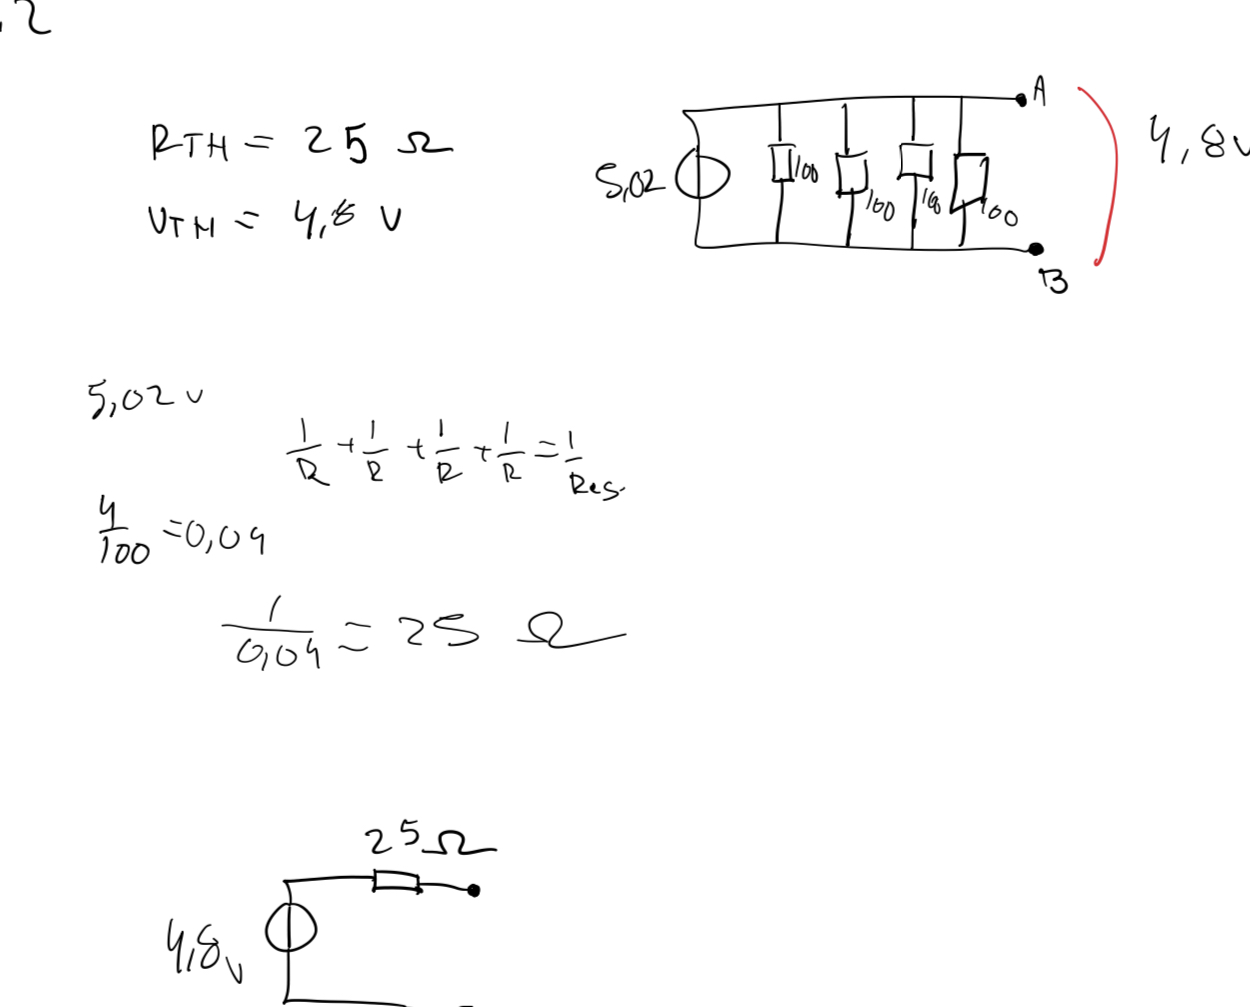 .2
RTH = 25 Ω
UTH = 4,8 V
A
5,02
100
100
100
100
4,8V
B
5,02 V
1/R + 1/R + 1/R + 1/R = 1/Res.
4/100 = 0,04
1/0,04 = 25 Ω
25 Ω
4,8 V